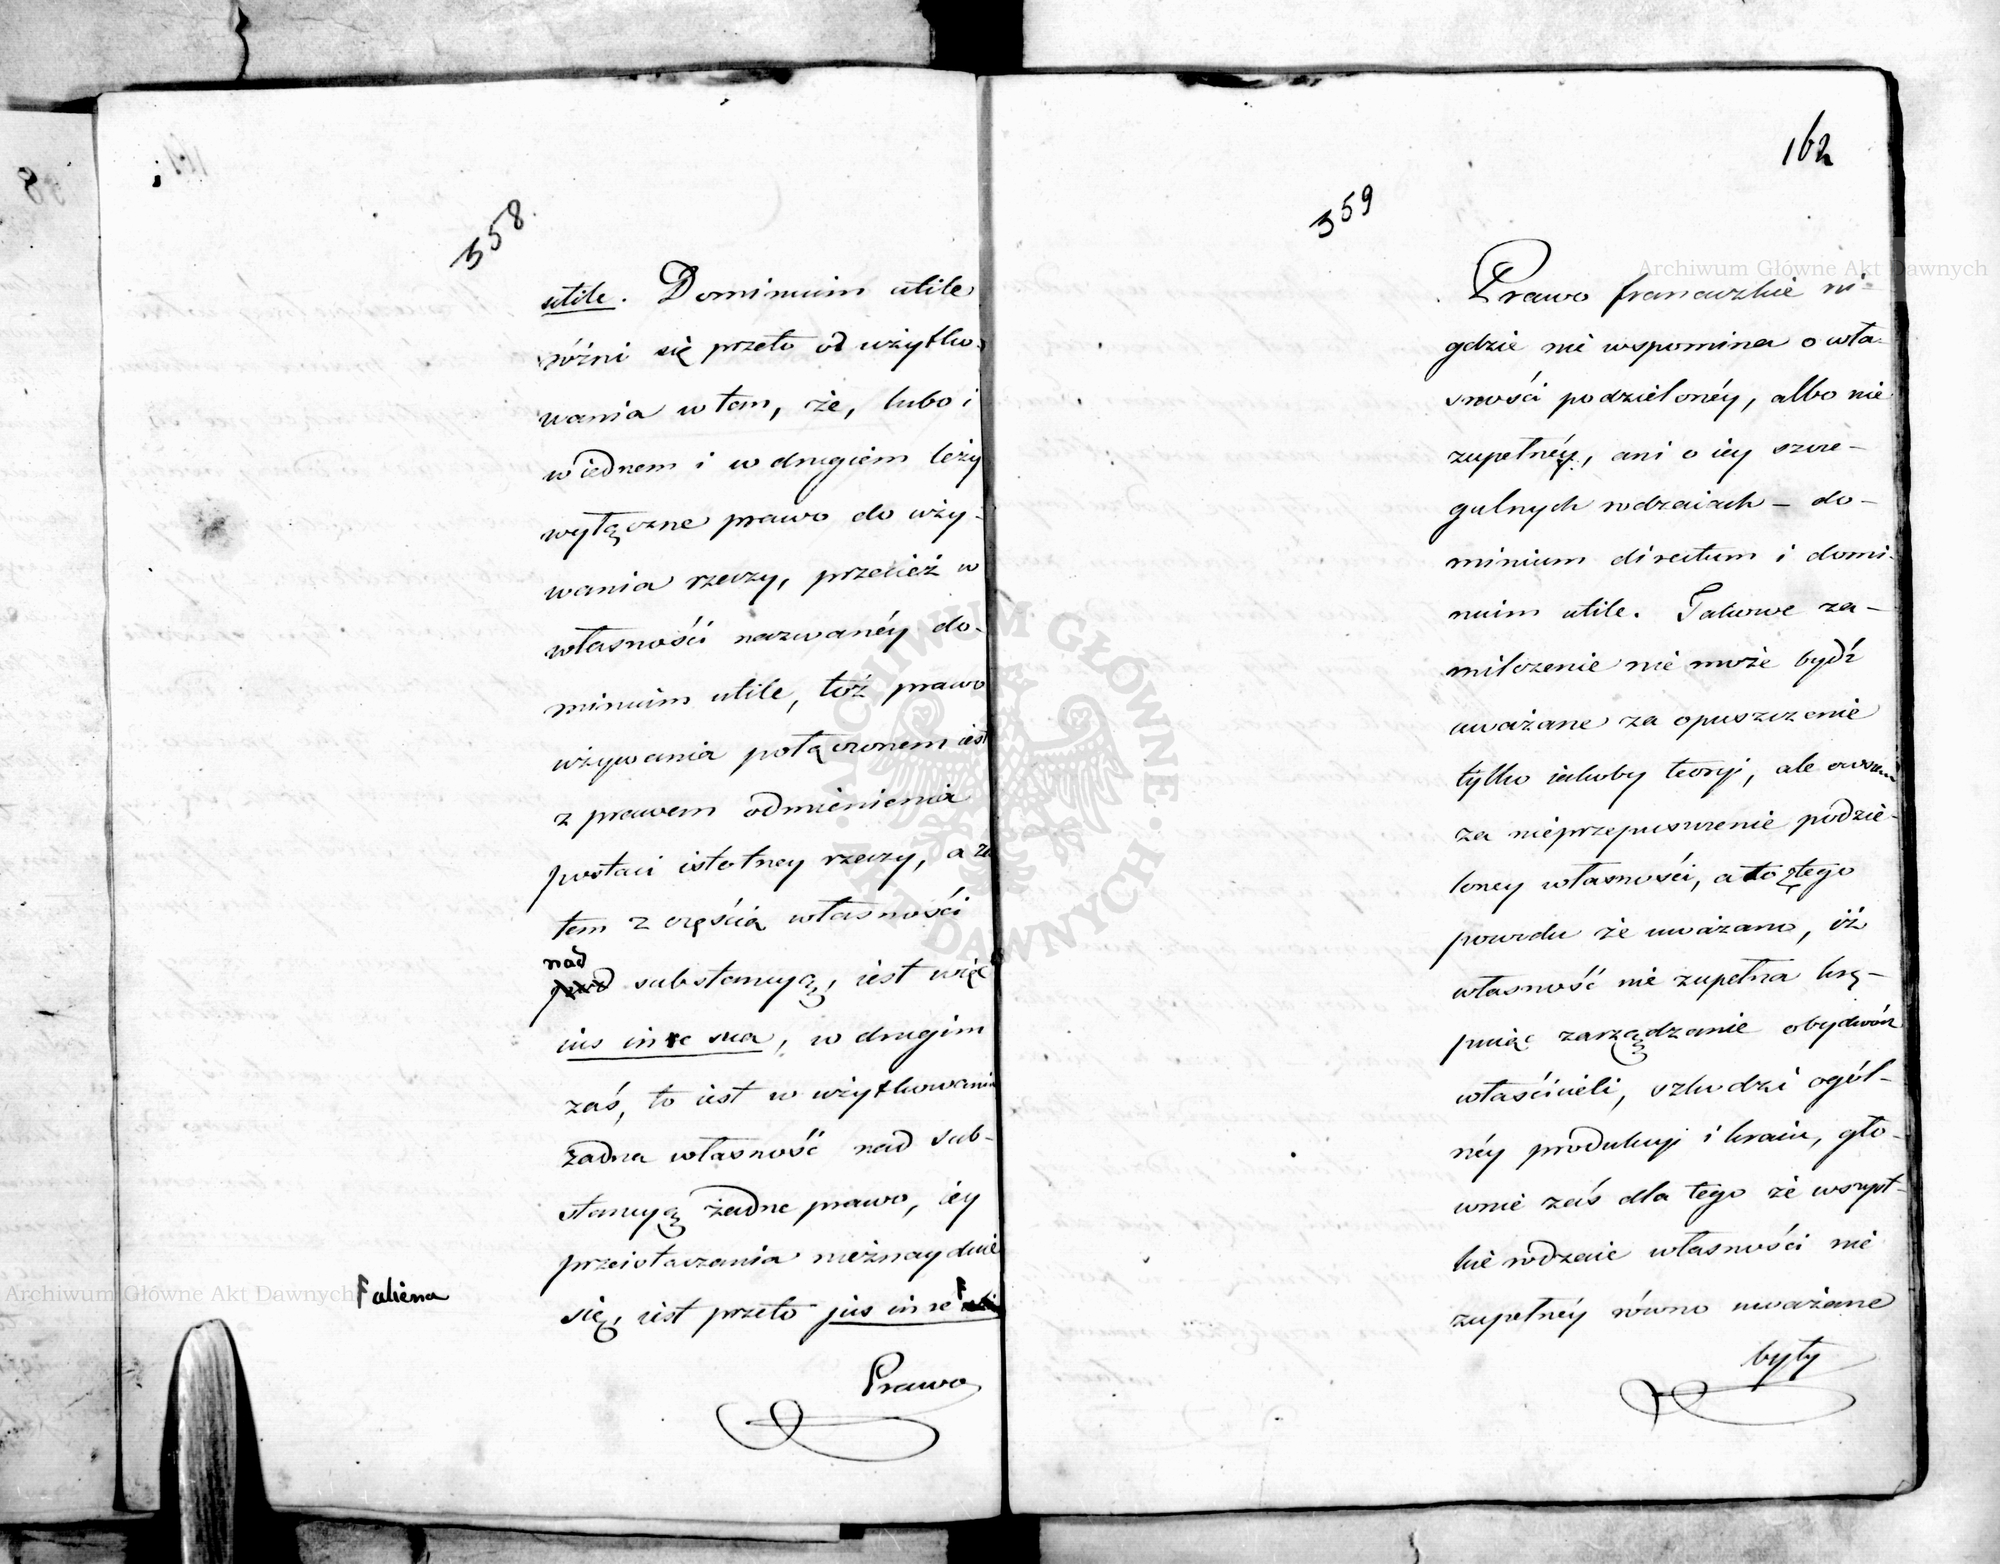 358.
utile. Dominium utile
różni się przeto od użytko-
wania w tem, że, lubo i
w iednem i w drugiem leży
wyłączne prawo do uży-
wania rzeczy, przecież w
własności nazwanéy do-
minium utile, toż prawo
używania połączonem iest
z prawem odmienienia
postaci istotney rzeczy, a za
tem z częścią własności
nad
substancyą, iest więc
ius in re sua, w drugim
zaś, to iest w użytkowaniu
żadna własność nad sub-
stancyą żadne prawo, iey
przeistaczania nieznayduie
się, iest przeto jus in re F
F aliena
Prawo
162
359
Prawo francuzkie ni-
gdzie nie wspomina o wła-
sności podzielonéy, albo nie
zupełnéy, ani o iéy szcze-
gulnych rodzaiach – do-
minium directum i domi-
nium utile. Takowe za-
milczenie nie może bydź
uważane za opuszczenie
tylko iakoby teoryi, ale owszem
za nieprzepuszczenie podzie-
loney własności, a to z tego
powodu że uważano, iż
własność nie zupełna krę-
puiąc zarządzanie obydwóch
właścicieli, szkodzi ogól-
néy produkcyi i kraiu, głó-
wnie zaś dla tego że wszyst-
kie rodzaie własności nie
zupełnéy równo uważane
były
Archiwum Główne Akt Dawnych
Archiwum Główne Akt Dawnych
ARCHIWUM GŁÓWNE · AKT DAWNYCH ·